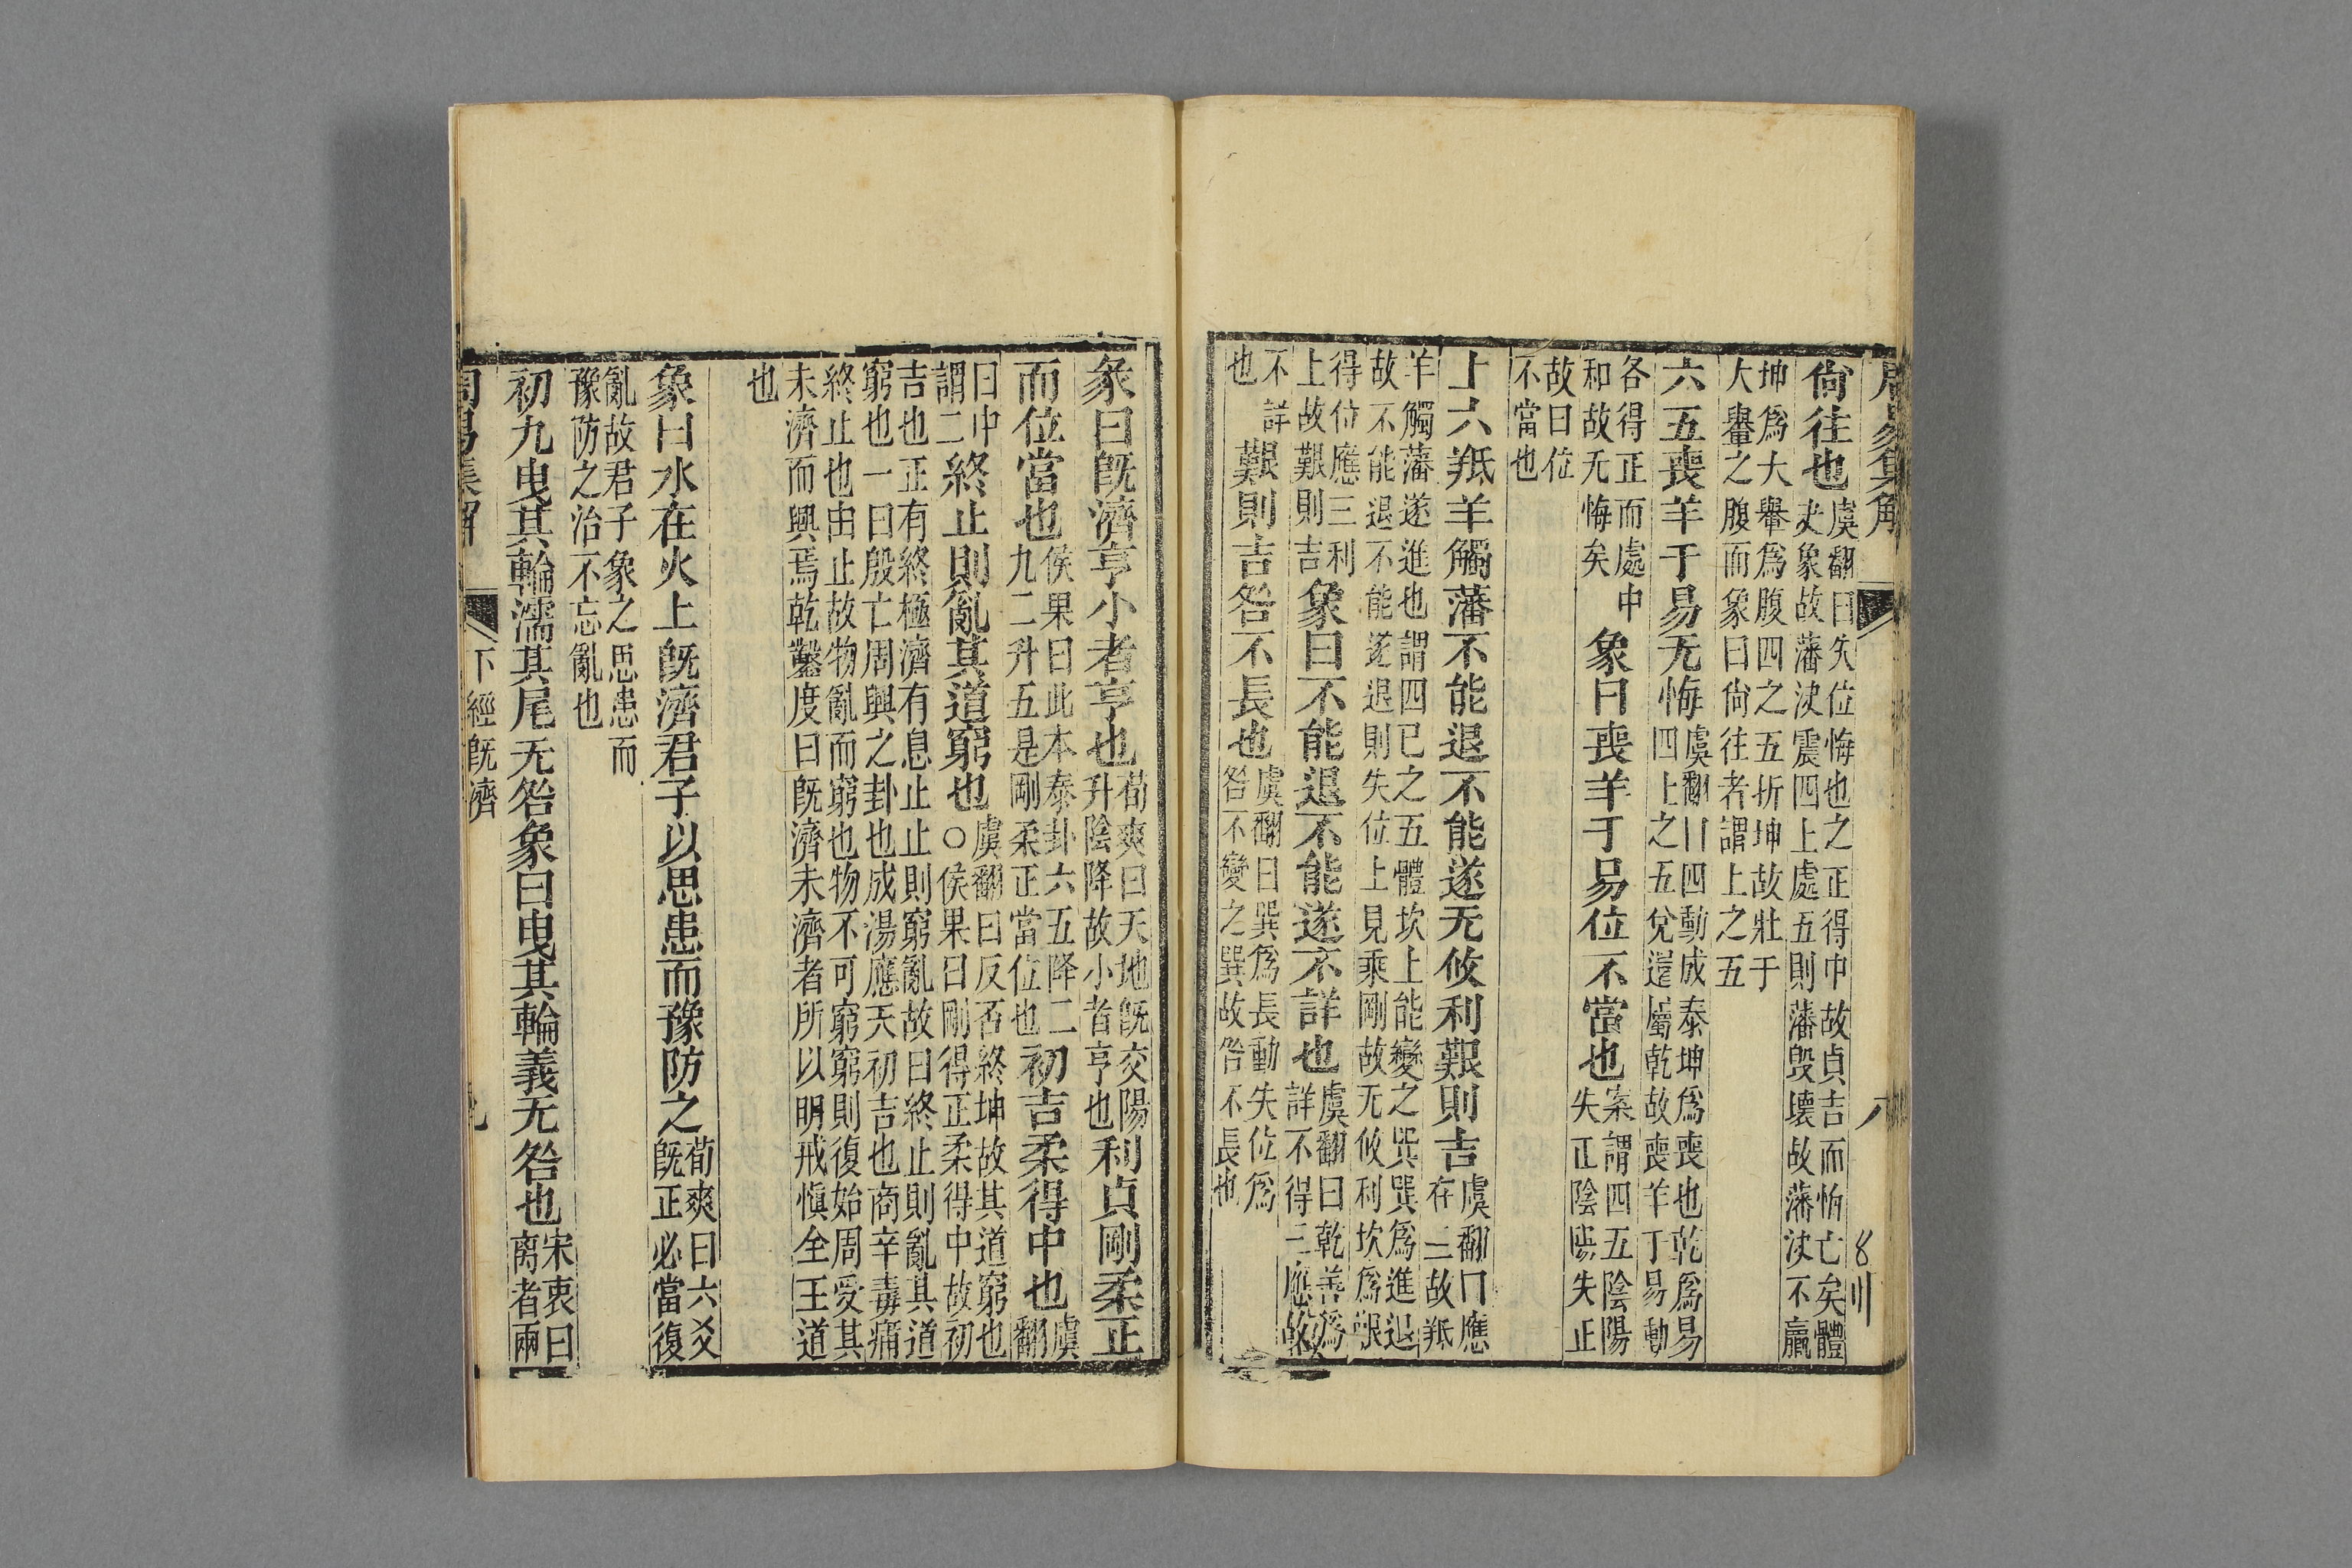 周易集解 八
尙往也虞翻曰失位悔也之正得中故貞吉而悔亡矣體夬象故藩決震四上處五則藩毁壞故藩決不羸
坤爲大轝爲腹四之五折坤故壯于
大轝之腹而象曰尙往者謂上之五
六五喪羊于易无悔虞翻曰四動成泰坤爲喪也乾爲易四上之五兌還屬乾故喪羊于易動
各得正而處中和故无悔矣象曰喪羊于易位不當也案謂四五陰陽失正陰陽失正
故曰位
不當也
上六羝羊觸藩不能退不能遂无攸利艱則吉虞翻曰應在三故羝
羊觸藩遂進也謂四已之五體坎上能變之巽巽爲進退
故不能退不能遂退則失位上見乘剛故无攸利坎爲艱
得位應三利上故艱則吉象曰不能退不能遂不詳也虞翻曰乾善爲詳不得三應故
不詳也艱則吉咎不長也虞翻曰巽爲長動失位爲咎不變之巽故咎不長也
彖曰旣濟亨小者亨也荀爽曰天地旣交陽升陰降故小者亨也利貞剛柔正
而位當也侯果曰此本泰卦六五降二九二升五是剛柔正當位也初吉柔得中也虞翻
曰中謂二終止則亂其道窮也虞翻曰反否終坤故其道窮也○侯果曰剛得正柔得中故初
吉也正有終極濟有息止止則窮亂故曰終止則亂其道
窮也一曰殷亡周興之卦也成湯應天初吉也商辛毒痡
終止也由止故物亂而窮也物不可窮窮則復始周受其
未濟而興焉乾鑿度曰旣濟未濟者所以明戒愼全王道
也
象曰水在火上旣濟君子以思患而豫防之荀爽曰六爻旣正必當復
亂故君子象之思患而
豫防之治不忘亂也
初九曳其輪濡其尾无咎象曰曳其輪義无咎也宋衷曰離者兩
周易集解 下經旣濟 九